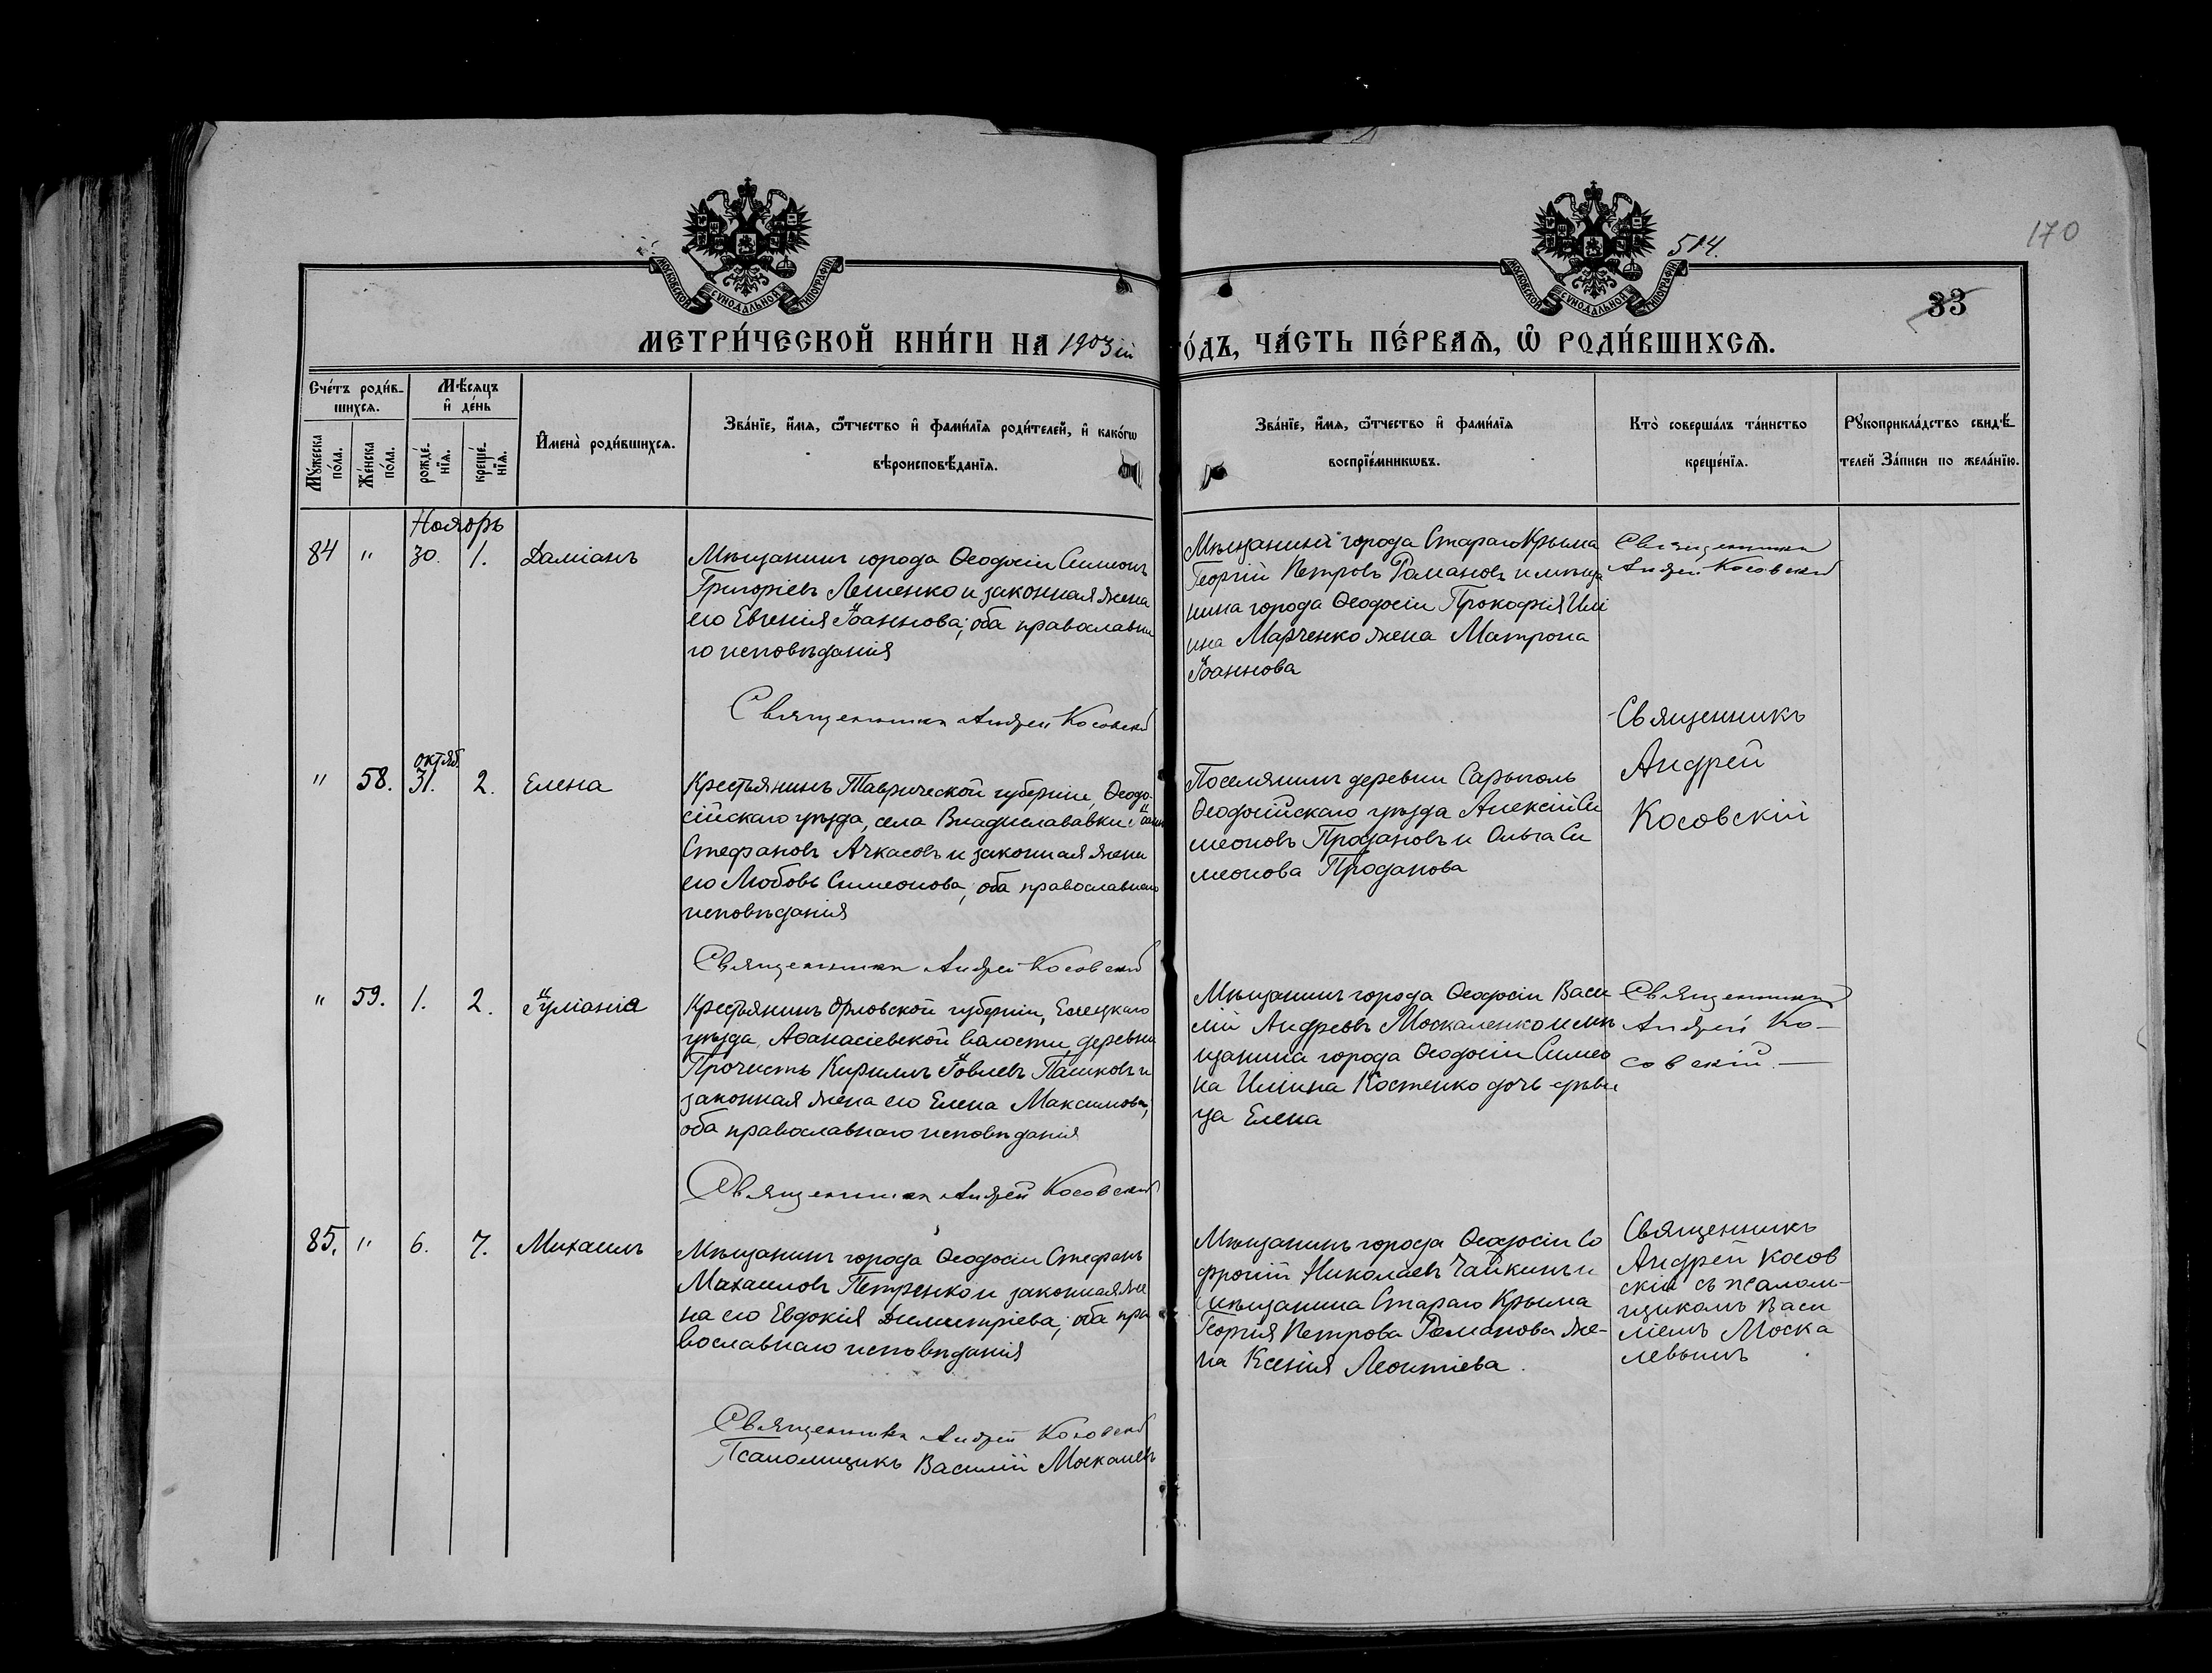 170
514.
33
МОСКОВСКОЙ СѴНОДАЛЬНОЙ ТИПОГРАФІИ
МОСКОВСКОЙ СѴНОДАЛЬНОЙ ТИПОГРАФІИ
МЕТРИ́ЧЕСКОЙ КНИ́ГИ НА 1903й
ГО́ДЪ, ЧА́СТЬ ПЕ́РВАѦ, Ѽ РОДИ́ВШИХСѦ.
Сче́тъ роди́в-
шихсѧ.
Мѣ́сѧцъ
и҆ де́нь
Мꙋ́жеска
по́ла.
Же́нска
по́ла.
рожде́-
нїѧ.
креще́-
нїѧ.
И҆мена̀ роди́вшихсѧ.
Зва́нїе, и҆́мѧ, ѻ҆́тчество и҆ фами́лїѧ роди́телей, и҆ како́гѡ
вѣроисповѣ́данїѧ.
Зва́нїе, и҆́мѧ, ѻ҆́тчество и҆ фами́лїѧ
воспрїе́мникѡвъ.
Кто̀ соверша́лъ та́инство
креще́нїѧ.
Рꙋкоприкла́дство свидѣ́-
телей За́писи по жела́нїю.
Ноябрь
84 " 30. 1. Даміанъ
Мѣщанинъ города Ѳеодосіи Симеонъ
Григоріевъ Лешенко и законная жена
его Евгенія Іоаннова; оба православна
го исповѣданія
Священникъ Андрей Косовскій
Мѣщанинъ города Стараго Крыма
Георгій Петровъ Романовъ и мѣща
нина города Ѳеодосіи Прокофія Или
ина Марченко жена Матрона
Іоаннова
Священникъ
Андрей Косовскій
октяб.
" 58. 31. 2. Елена
Крестьянинъ Таврической губерніи, Ѳеодо-
сійскаго уѣзда, села Владиславовки
Стефановъ Ачкасовъ и законная жена
его Любовь Симеонова, оба православнаго
исповѣданія
Священникъ Андрей Косовскій
Поселянинъ деревни Сарыголь
Ѳеодосійскаго уѣзда Алексій Си
меоновъ Продановъ и Ольга Си
меонова Проданова
Священникъ
Андрей
Косовскій
" 59. 1. 2. Іуліанія
Крестьянинъ Орловской губерніи, Елецкаго
уѣзда, Аѳанасіевской волости, деревни
Кириллъ Іовлевъ Пашковъ и
законная жена его Елена Максимова,
оба православнаго исповѣданія
Священникъ Андрей Косовскій
Мѣщанинъ города Ѳеодосіи Васи
лій Андреевъ Москаленко и мѣ
щанина города Ѳеодосіи Симео
на Ильина Костенко дочь дѣви
ца Елена
Священникъ
Андрей Ко-
совскій. -
85. " 6. 7. Михаилъ
Мѣщанинъ города Ѳеодосіи Стефанъ
Михаиловъ Петренко и законная же
на его Евдокія Димитріева; оба пра
вославнаго исповѣданія
Священникъ Андрей Косовскій
Псаломщикъ Василій Москалевъ
Мѣщанинъ города Ѳеодосіи Со
фроній Николаевъ Чайкинъ и
мѣщанина Стараго Крыма
Георгія Петрова Романова же-
на Ксенія Леонтіева.
Священникъ
Андрей Косов
скій съ псалом-
щикомъ Васи
ліемъ Моска
левымъ